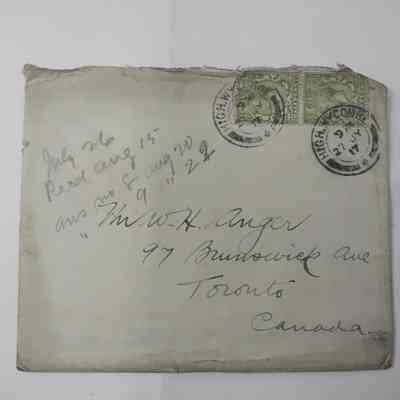 HIGH. WYCOMBE
HIGH. WYCOMBE
27 JY
17
July 26
Recd aug 15
ans no 8 aug 20
" " 9 " 22
Mr W. H. Anger
97 Brunswick Ave
Toronto
Canada